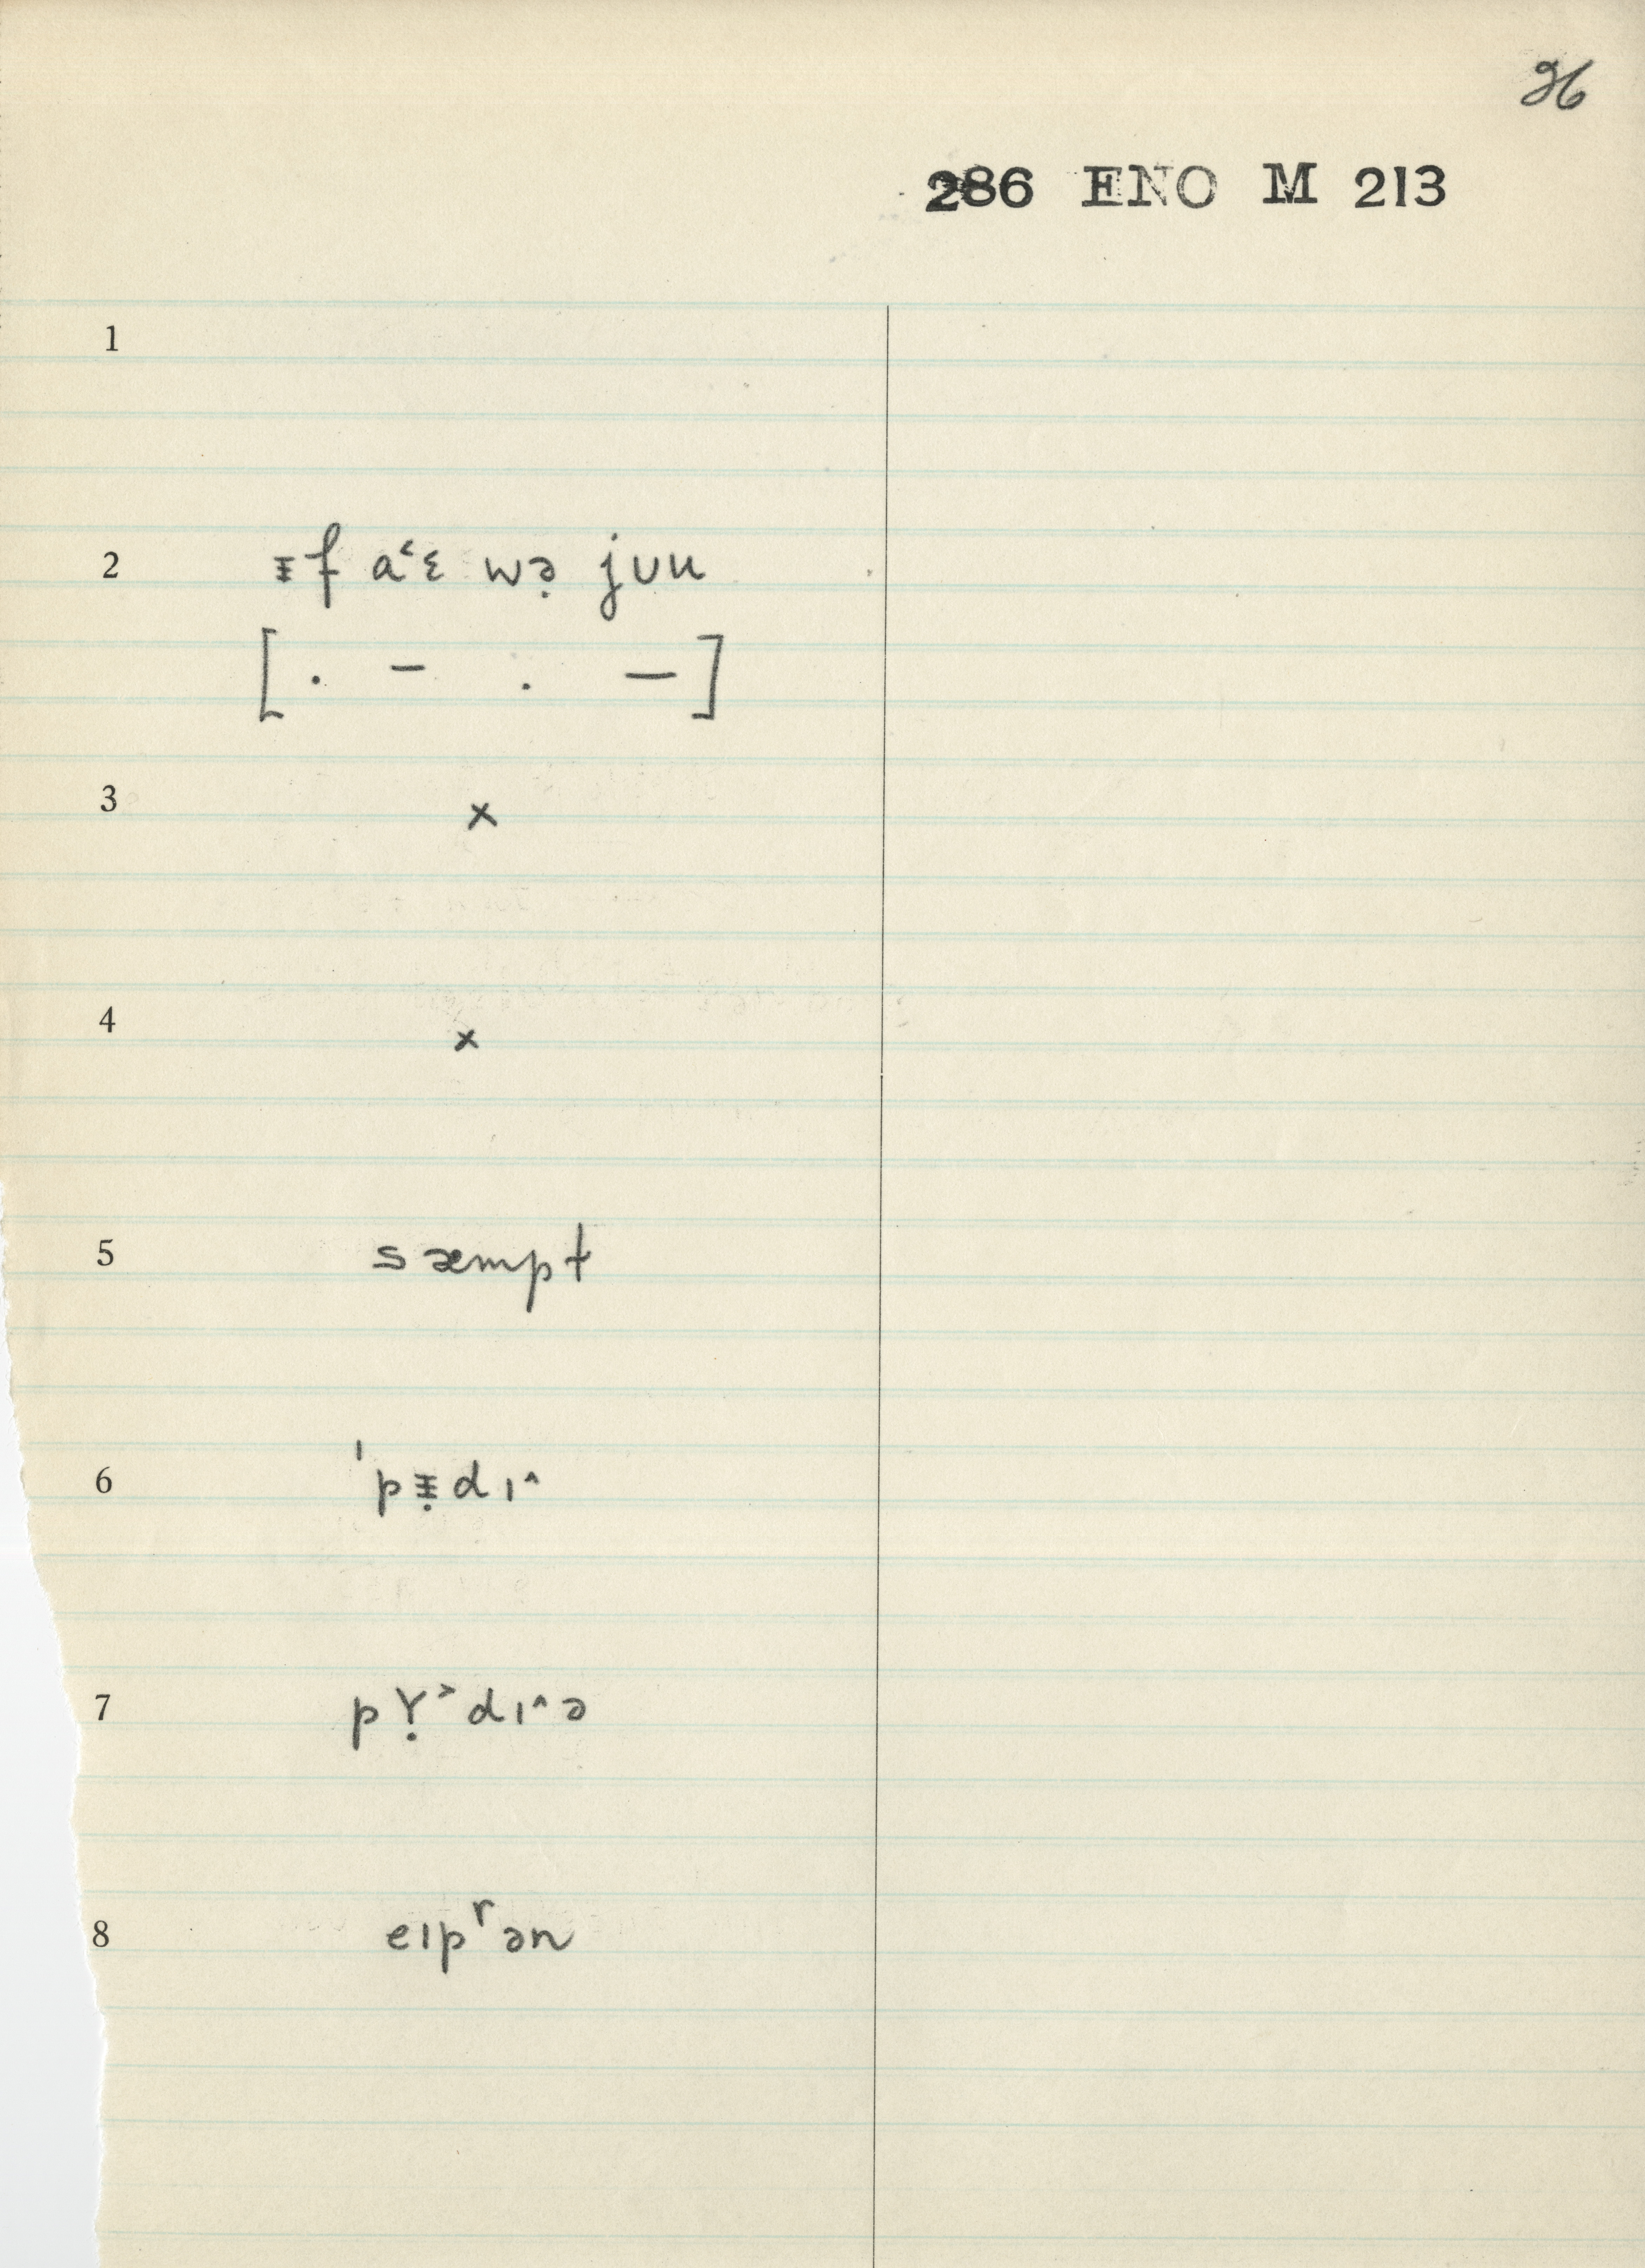 26
286 ENO M 213
1
2 ᵻf a˂ɛ wə̣ jʊu
[ . – . – ]
3 x
4 x
5 sæmpt
6 ˈpᵻ̣dɪ˄
7 pɤ̣˃dɪ˄ə
8 eɪpʳən